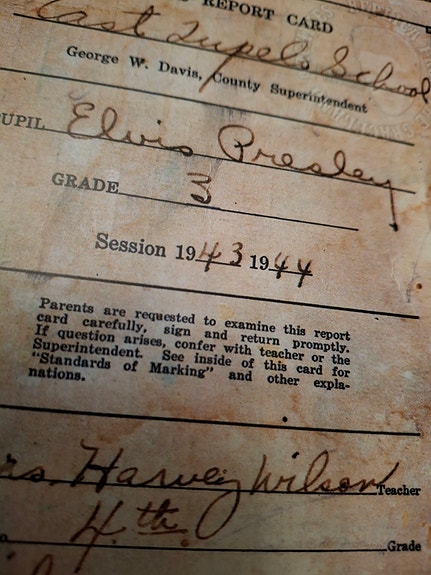 REPORT CARD
East Tupelo School
George W. Davis, County Superintendent
PUPIL Elvis Presley
GRADE 3
Session 1943 1944
Parents are requested to examine this report
card carefully, sign and return promptly.
If question arises, confer with teacher or the
Superintendent. See inside of this card for
"Standards of Marking" and other expla-
nations.
Mrs. Harvey Wilson Teacher
4th. Grade